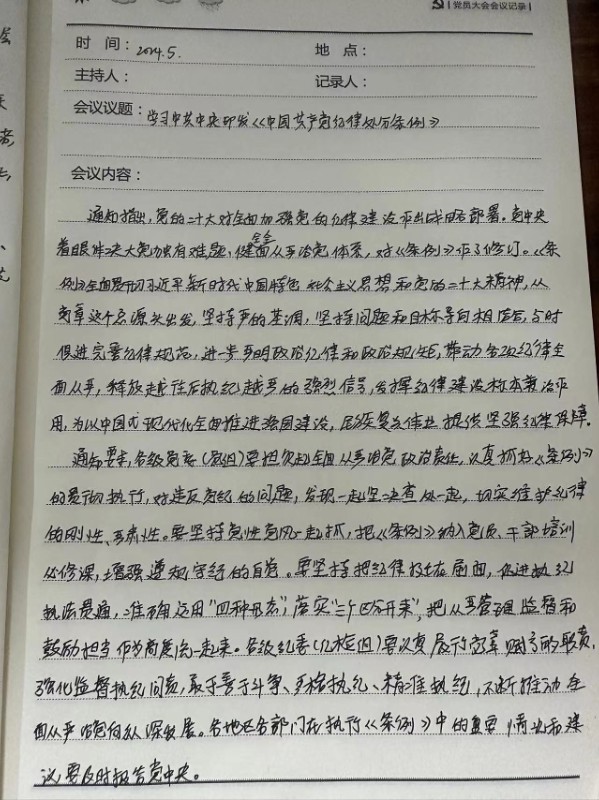 党员大会会议记录
时 间： 2024.5. 地 点：
主持人： 记录人：
会议议题： 学习中共中央印发《中国共产党纪律处分条例》
会议内容：
通知指出，党的二十大对全面加强党的纪律建设作出战略部署。党中央
着眼解决大党独有难题、健全全面从严治党体系，对《条例》作了修订。《条
例》全面贯彻习近平新时代中国特色社会主义思想和党的二十大精神，从
党章这个总源头出发，坚持严的基调，坚持问题和目标导向相结合，与时
俱进完善纪律规范，进一步严明政治纪律和政治规矩，带动各项纪律全
面从严，释放越往后执纪越严的强烈信号，发挥纪律建设标本兼治作
用，为以中国式现代化全面推进强国建设，民族复兴伟业提供坚强纪律保障。
通知要求，各级党委（党组）要担负起全面从严治党政治责任，认真抓好《条例》
的贯彻执行，对违反党纪的问题，发现一起坚决查处一起，切实维护纪律
的刚性、严肃性。要坚持党性党风一起抓，把《条例》纳入党员、干部培训
必修课，增强遵规守纪的自觉。要坚持把纪律挺在前面，促进执纪
执法贯通，准确运用“四种形态”，落实“三个区分开来”，把从严管理监督和
鼓励担当作为高度统一起来。各级纪委（纪检组）要认真履行党章赋予的职责，
强化监督执纪问责，敢于善于斗争、严格执纪、精准执纪，不断推动全
面从严治党向纵深发展。各地区各部门在执行《条例》中的重要情况和建
议，要及时报告党中央。